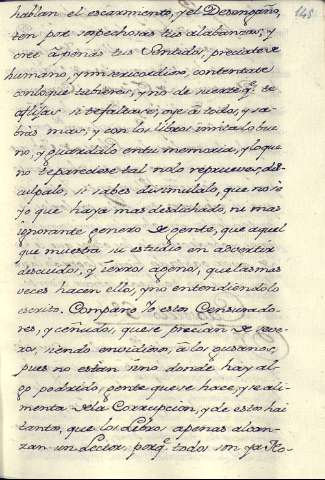 148
hablan el escarmiento, y el Desengaño,
ten por sospechosas tus alabanzas, y
cree à penas tus Sentidos, preciate de
humano, y misericordioso, contentate
con loque tubieres, y no de suerte q.e te
aflijas si te faltase; oye à todos, y sa-
bràs mas; y con los libros imita lo bue
no, y guardalo en tu memoria, y lo que
no te pareciese tal no lo repruebes, dis-
culpalo, si sabes disimulalo, que no se
yo que haya mas desdichado, ni mas
ignorante genero de gente, que aquel
que muestra su estudio en advertir
descuidos, y ierros ageno, que las mas
veces hacen ellos, y no entendiendo lo
escrito. Comparo Yo estos Censurado-
res, y ceñudos, que se precian de seve-
ros, siendo envidiosos, à los gusanos,
pues no están sino donde hay al-
go podrido, gente que se hace, y se ali-
menta de la Corrupcion, y de estos hai
tantos, que los Libros apenas alcan-
zan un Lector, porq.e todos son ya